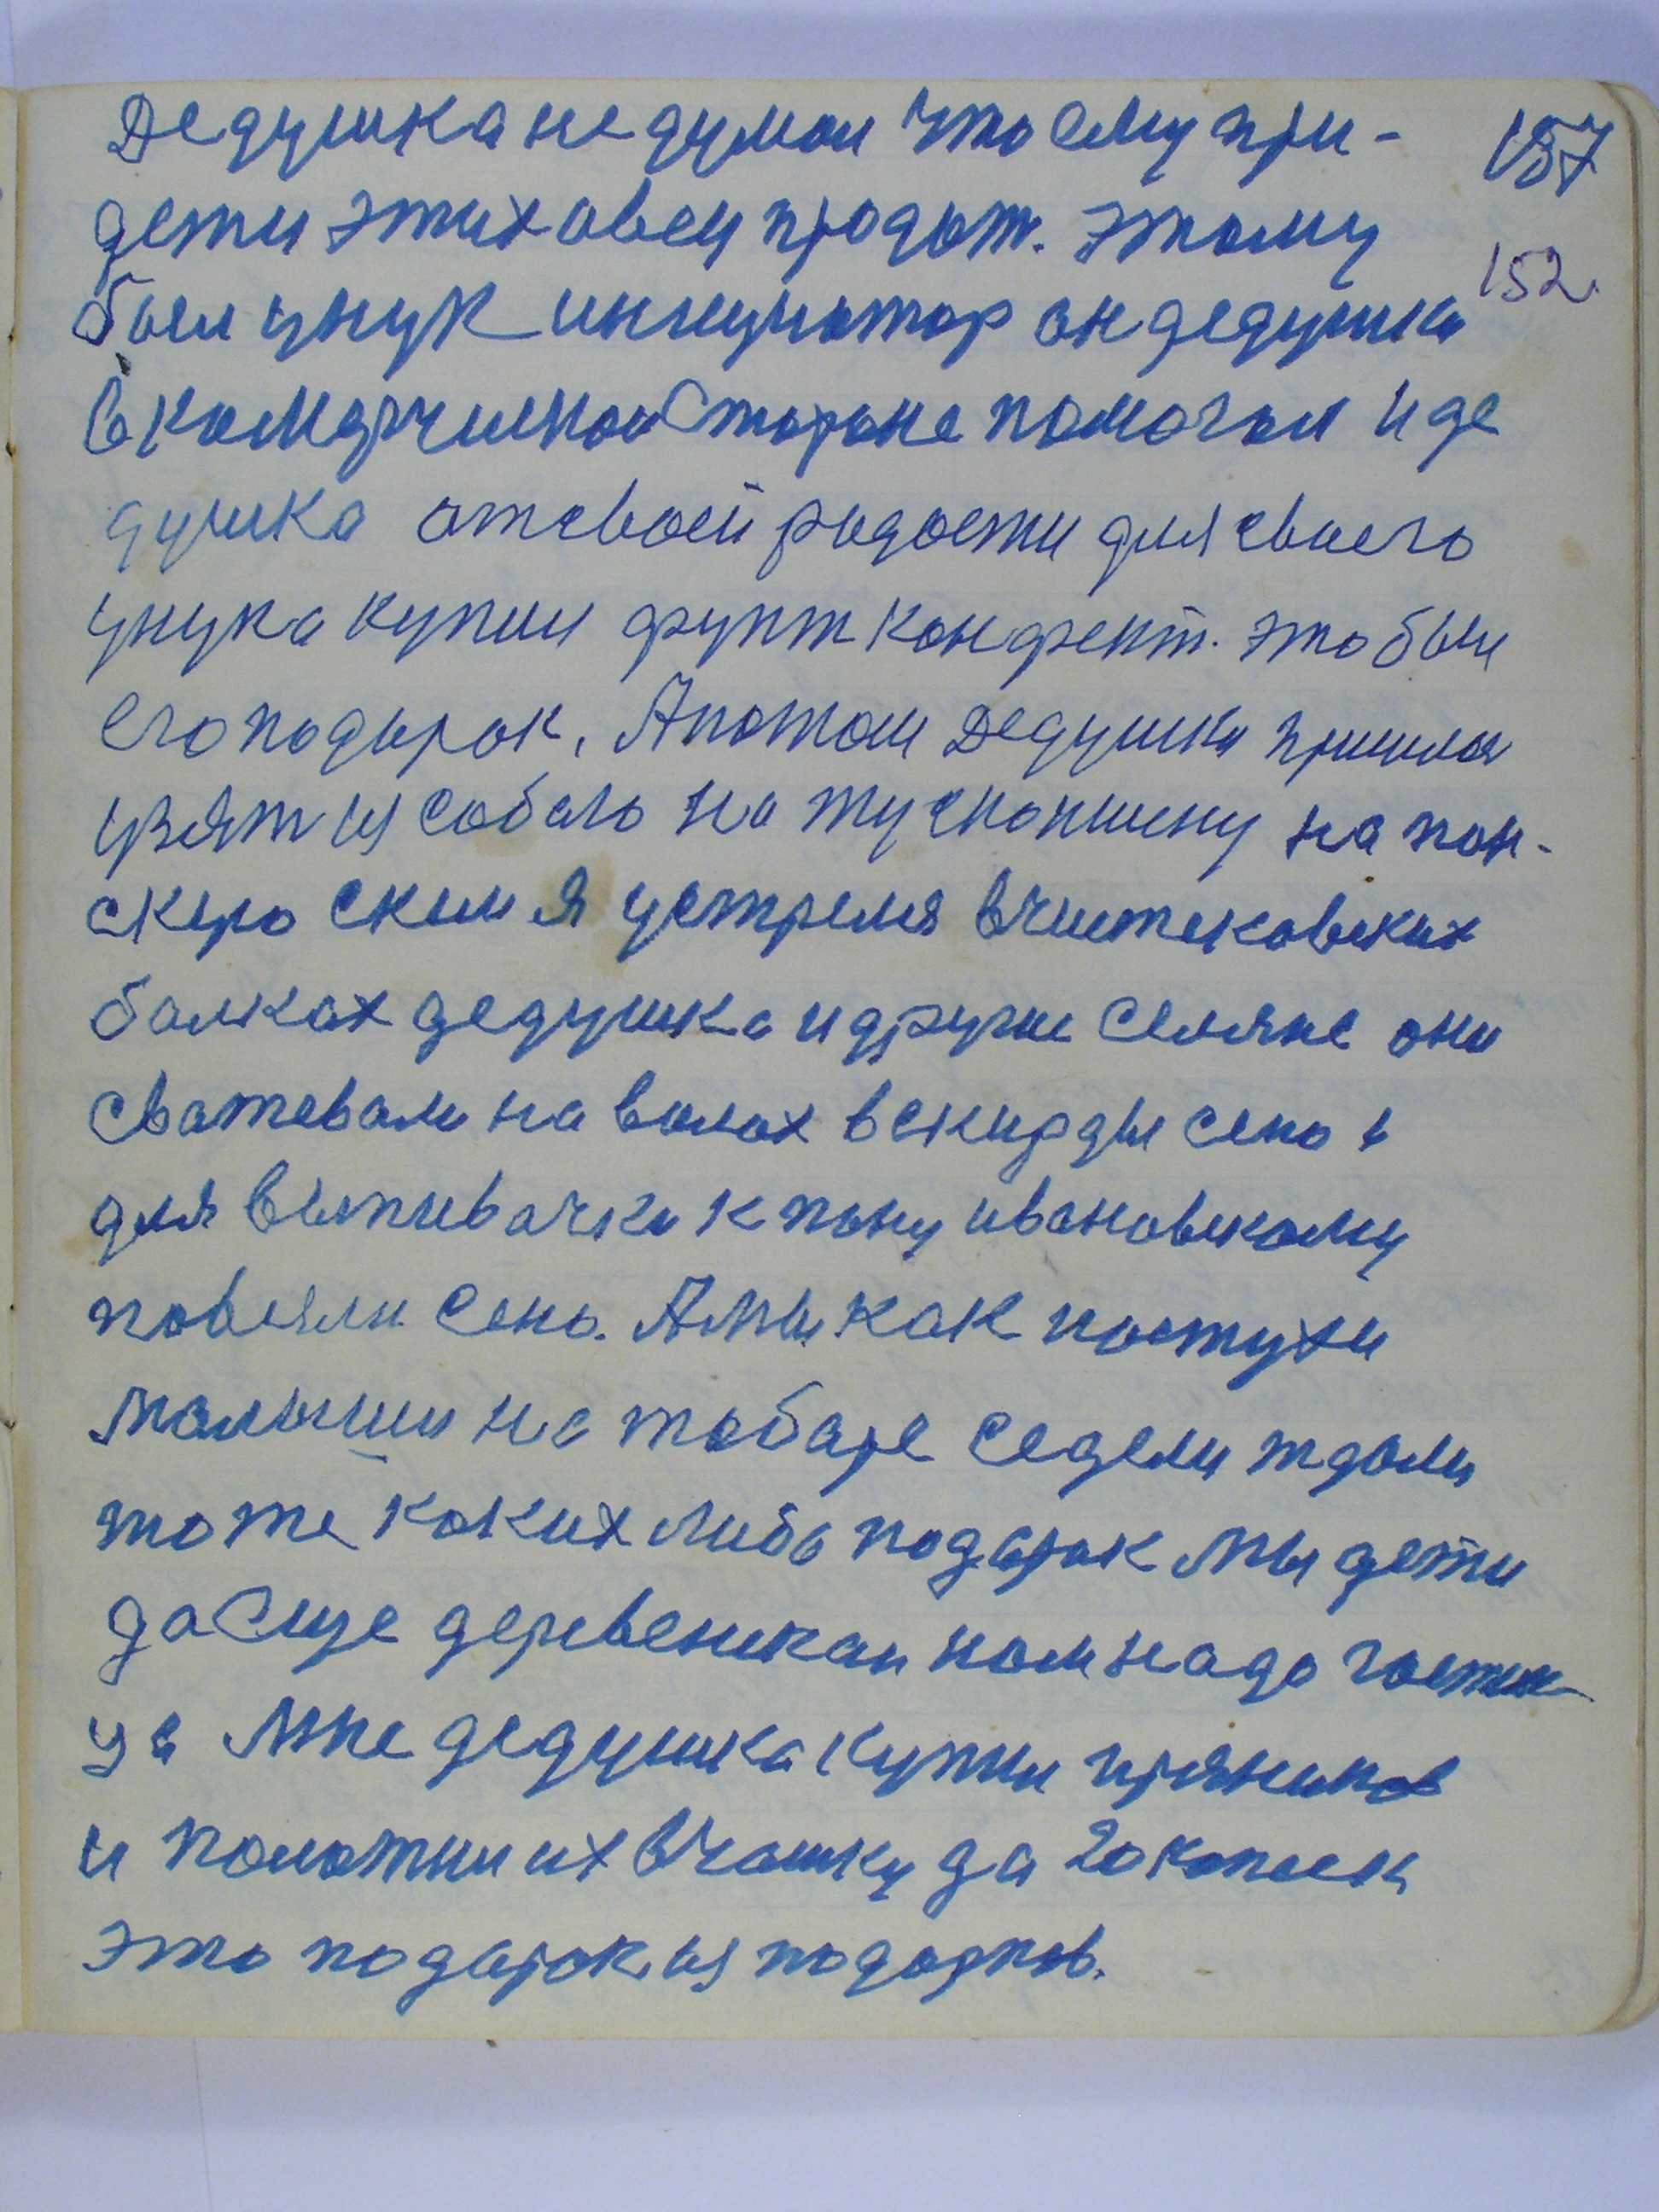 Дедушка не думал что ему при-
157
дети этих овец продат. Этому
152
был унук инициатор он дедушки
в комерчиской стороне помогал и де
душка от своей радости для своего
унука купил фунт конфект. это был
его подарок. А потом дедушки пришлос
узят из собою на ту скопшину на пон-
скую с ким я устрелся в чистяковских
балках дедушка и други селяне они
сватевали на волах в скирды сено и
для выпивачки к пану ивановскому
повезли сено. А мы как пастухи
малыши на тобаре седели ждали
тоже каких либо подарок мы дети
да еще деревенскаи нам надо гостин
ца мне дедушка купил пряников
и положил их в чашку да 20 копеек
это подарок из подарков.